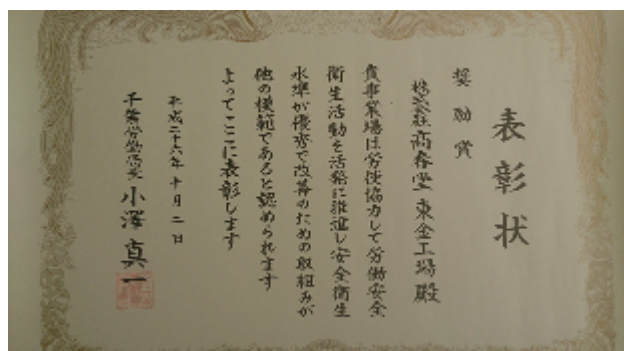 表彰状
奨励賞
株式会社高春堂 東金工場殿
貴事業場は労使協力して労働安全
衛生活動を活発に推進し安全衛生
水準が優秀で改善のための取組みが
他の模範であると認められます
よってここに表彰します
平成二十六年十月二日
千葉労働局長 小澤真一